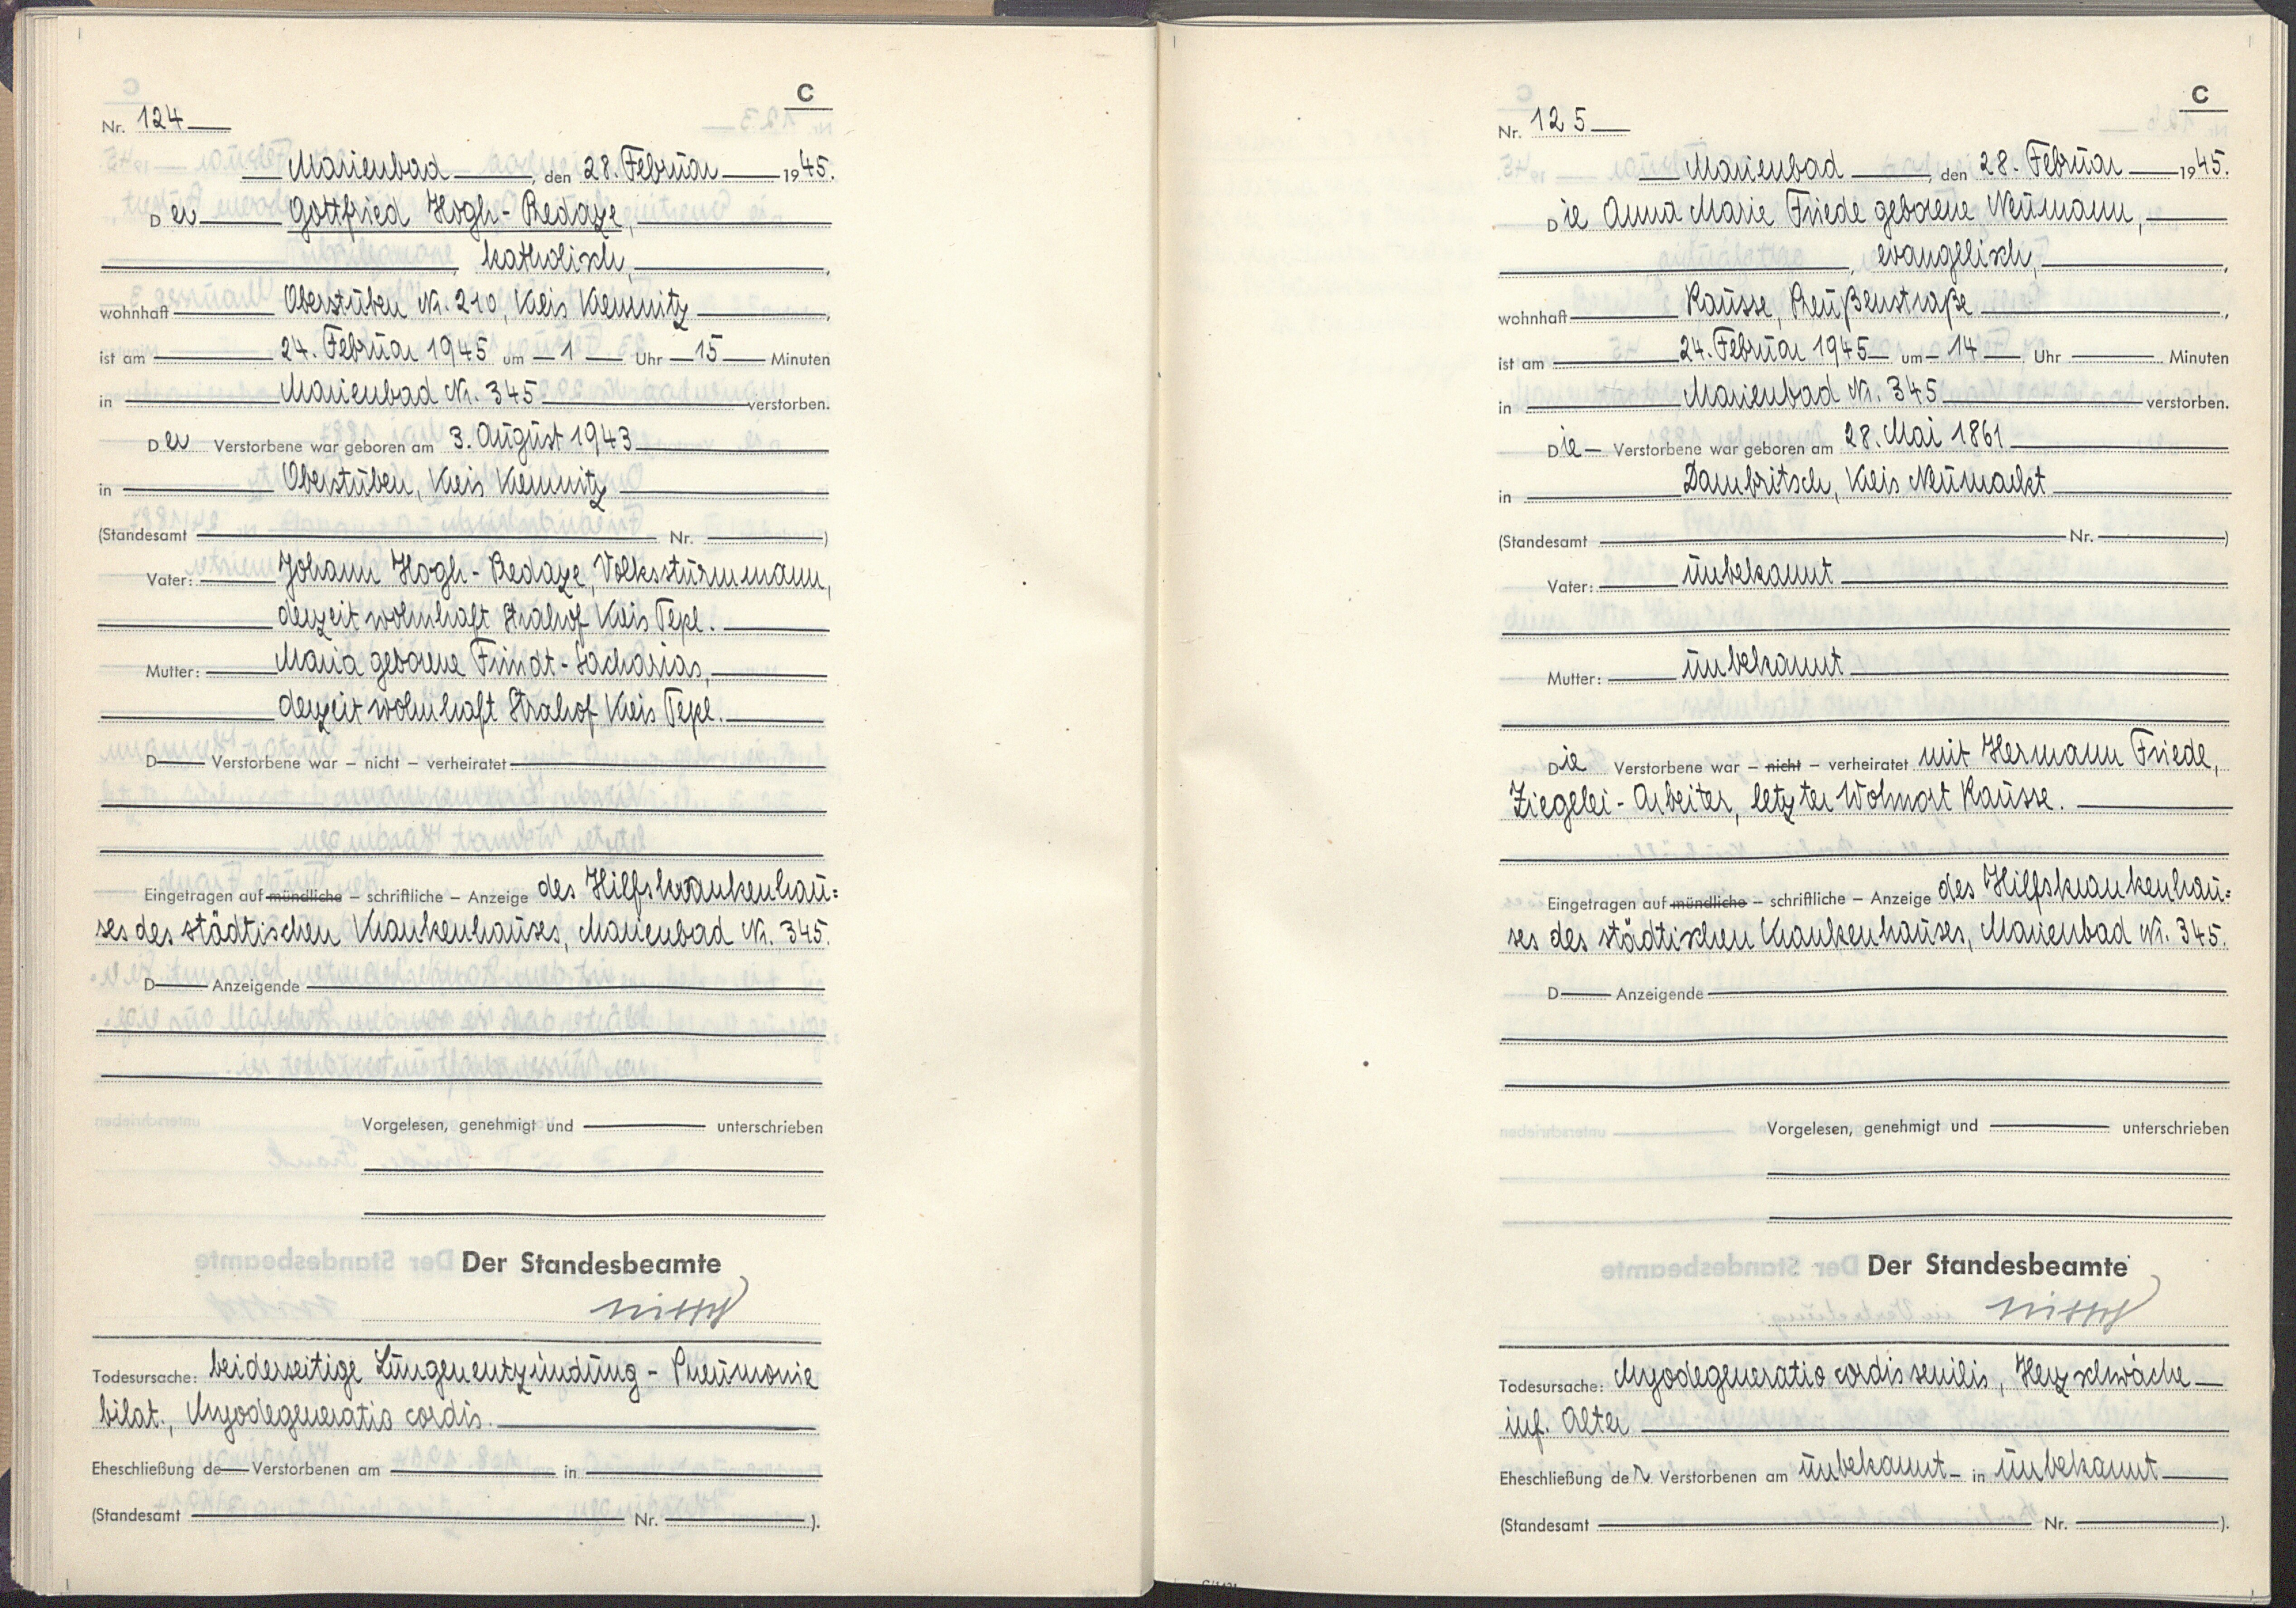 C
Nr. 124
Marienbad, den 28. Februar 1945.
Der Gottfried Hogh-Redaze,
katholisch,
wohnhaft Oberstuben Nr. 210, Kreis Kremnitz,
ist am 24. Februar 1945 um 1 Uhr 15 Minuten
in Marienbad Nr. 345 verstorben.
Der Verstorbene war geboren am 3. August 1943
in Oberstuben, Kreis Kremnitz
(Standesamt Nr. )
Vater: Johann Hogh-Redaze, Volkssturmmann,
derzeit wohnhaft Strahof Kreis Tepl.
Mutter: Maria geborene Frindt-Sacharias,
derzeit wohnhaft Strahof Kreis Tepl.
D Verstorbene war – nicht – verheiratet
Eingetragen auf mündliche – schriftliche – Anzeige des Hilfskrankenhau=
ses des städtischen Krankenhauses, Marienbad Nr. 345.
D Anzeigende
Vorgelesen, genehmigt und unterschrieben
Der Standesbeamte
Todesursache: beiderseitige Lungenentzündung - Pneumonie
bilat., Myodegeneratio cordis.
Eheschließung de Verstorbenen am in
(Standesamt Nr. ).
C
Nr. 125
Marienbad, den 28. Februar 1945.
Die Anna Marie Friede geborene Neumann,
, evangelisch,
wohnhaft Kausse, Reußenstraße,
ist am 24. Februar 1945 um 14 Uhr Minuten
in Marienbad Nr. 345 verstorben.
Die Verstorbene war geboren am 28. Mai 1861
in Dambritsch, Kreis Neumarkt
(Standesamt Nr. )
Vater: unbekannt
Mutter: unbekannt
Die Verstorbene war – nicht – verheiratet mit Hermann Friede,
Ziegelei-Arbeiter, letzter Wohnort Kausse.
Eingetragen auf mündliche – schriftliche – Anzeige des Hilfskrankenhau=
ses des städtischen Krankenhauses, Marienbad Nr. 345.
D Anzeigende
Vorgelesen, genehmigt und unterschrieben
Der Standesbeamte
Todesursache: Myodegeneratio cordis senilis, Herzschwäche
inf. Alter
Eheschließung der Verstorbenen am unbekannt in unbekannt
(Standesamt Nr. ).